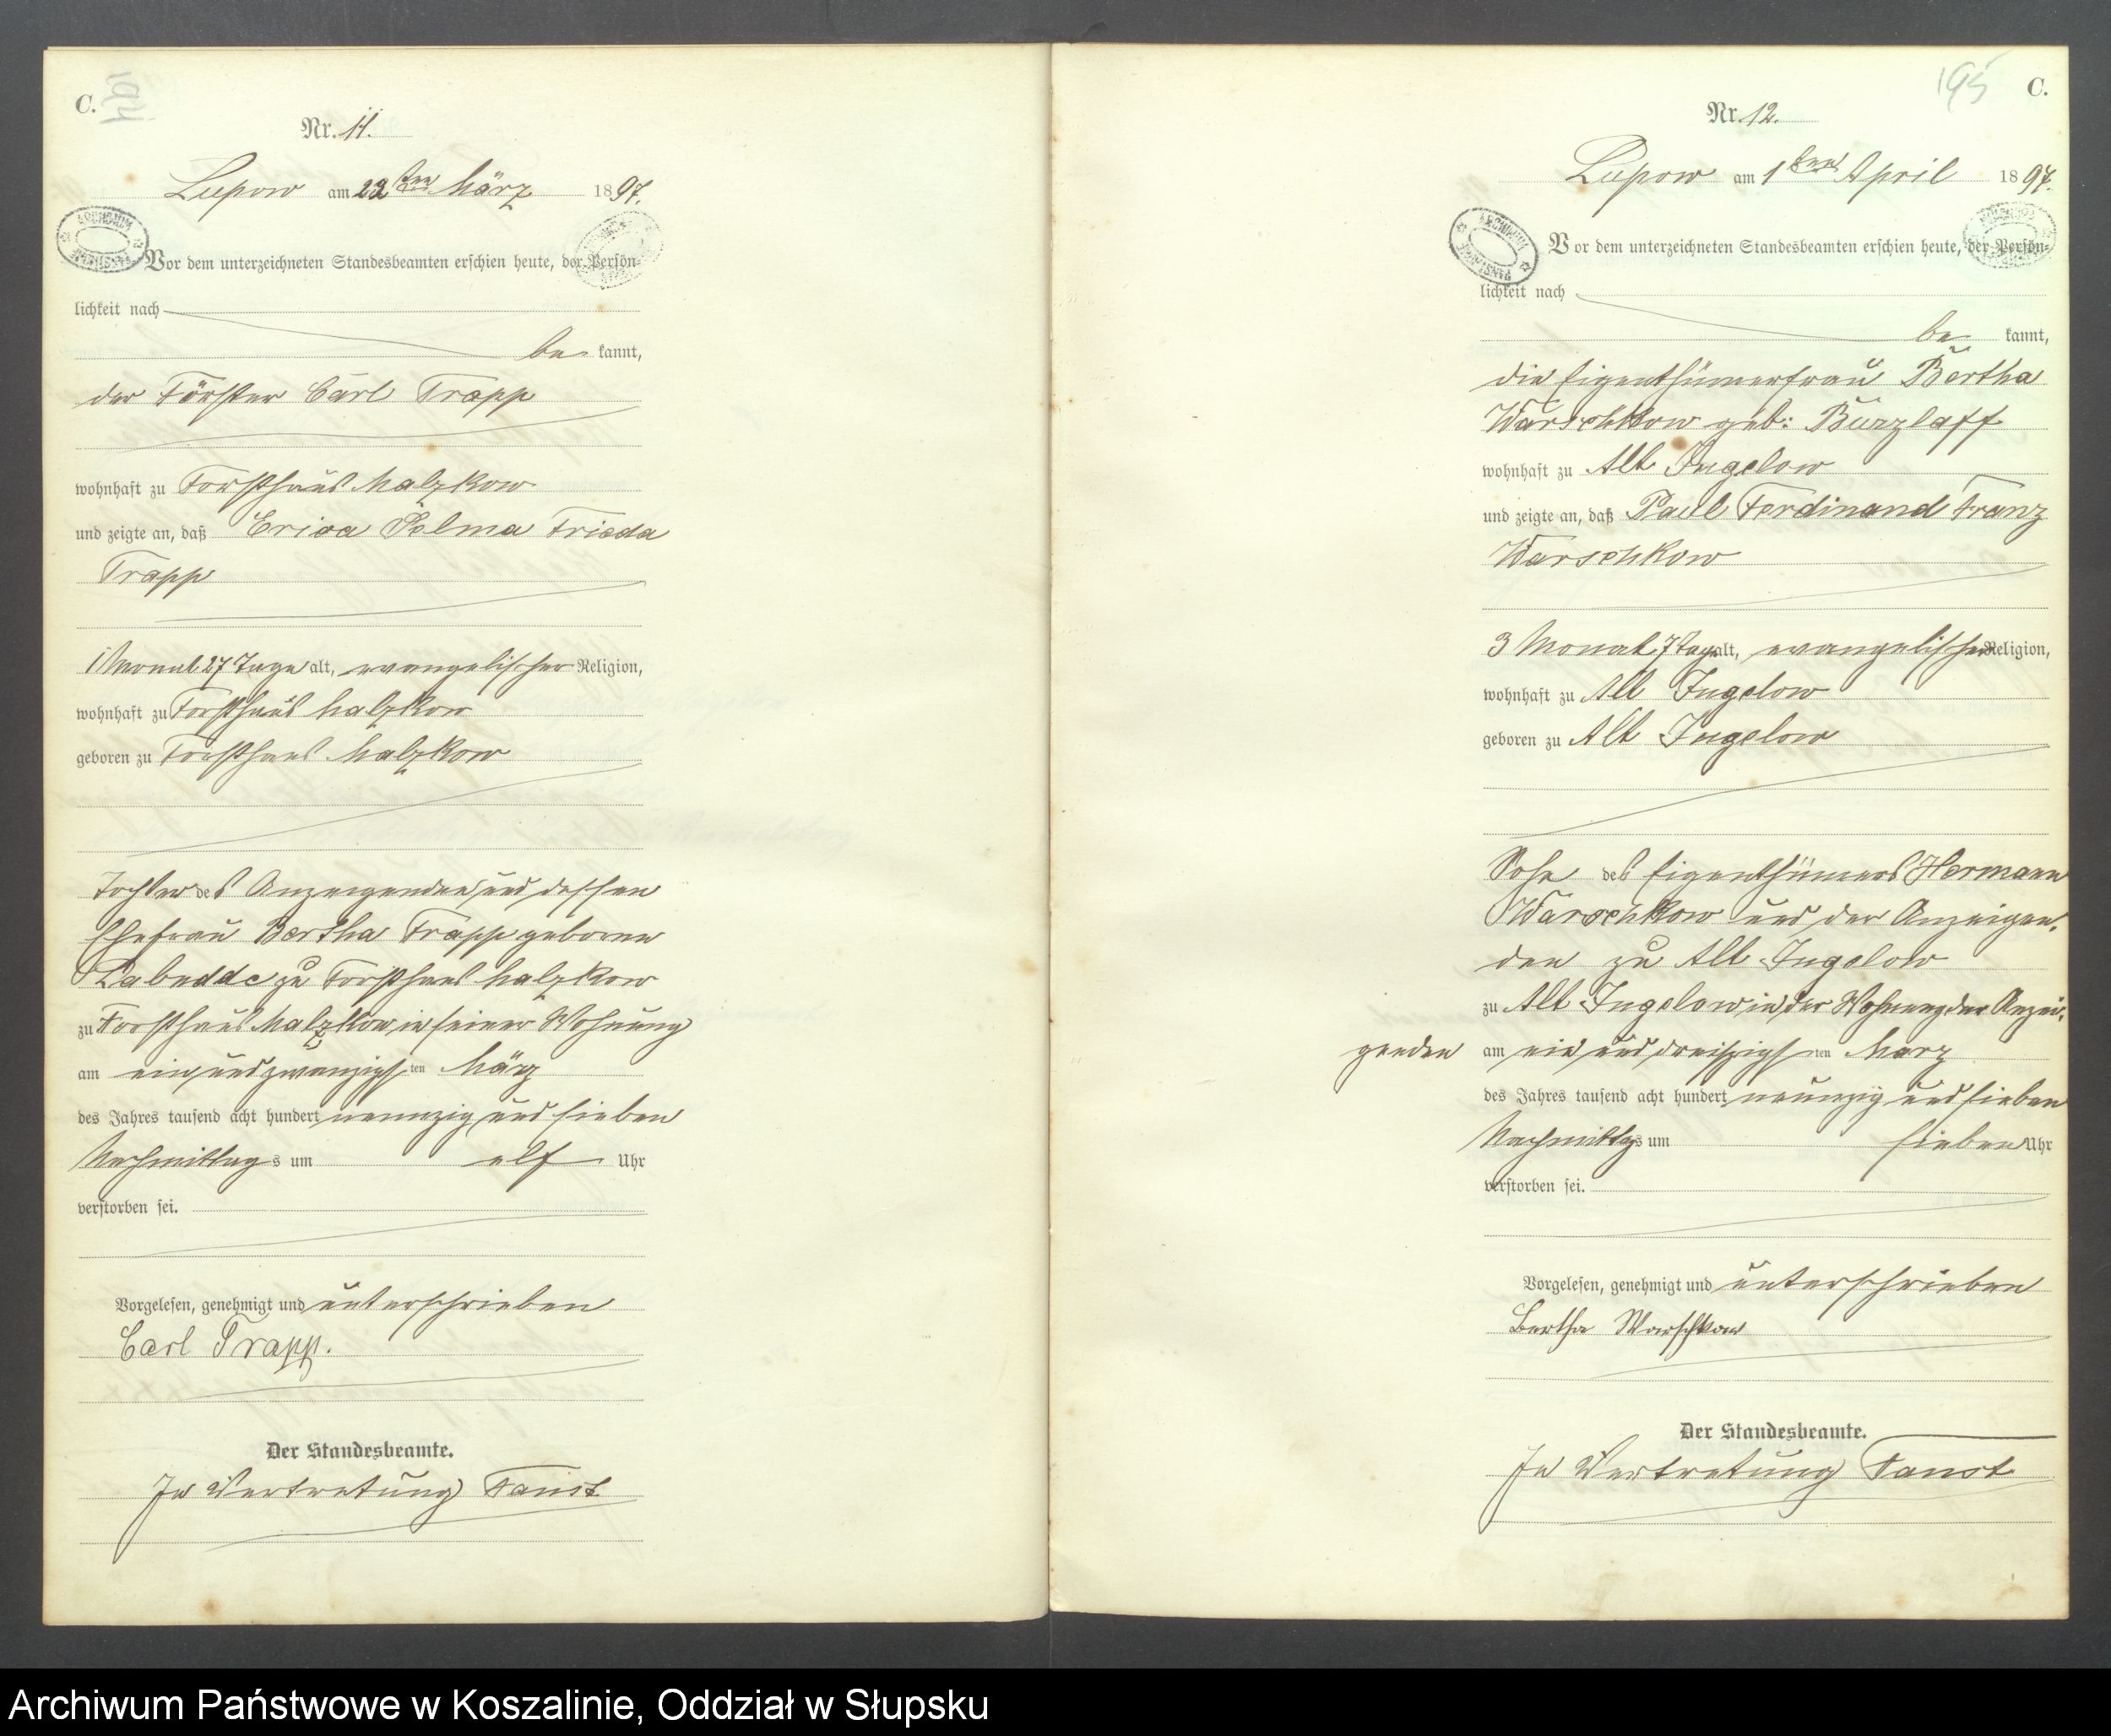 C.
194
Nr. 11.
Lupow am 22ten März 1897.
Vor dem unterzeichneten Standesbeamten erschien heute, der Persön=
lichkeit nach
be kannt,
der Förster Carl Trapp
wohnhaft zu Forsthaus Malzkow
und zeigte an, daß Erica Selma Frieda
Trapp
1 Monat 27 Tage alt, evangelischer Religion,
wohnhaft zu Forsthaus Malzkow
geboren zu Forsthaus Malzkow
Tochter des Anzeigenden und dessen
Ehefrau Bertha Trapp geborene
Labudde zu Forsthaus Malzkow
zu Forsthaus Malzkow in seiner Wohnung
am ein und zwanzigsten März
des Jahres tausend acht hundert neunzig und sieben
Nachmittags um elf Uhr
verstorben sei.
Vorgelesen, genehmigt und unterschrieben
Carl Trapp.
Der Standesbeamte.
In Vertretung Faust
195
C.
Nr. 12.
Lupow am 1ten April 1897.
Vor dem unterzeichneten Standesbeamten erschien heute, der Persön=
lichkeit nach
be kannt,
die Eigenthümerfrau Bertha
Warschkow geb: Burzlaff
wohnhaft zu Alt Jugelow
und zeigte an, daß Paul Ferdinand Franz
Warschkow
3 Monat 7 Tage alt, evangelischer Religion,
wohnhaft zu Alt Jugelow
geboren zu Alt Jugelow
Sohn des Eigenthümers Hermann
Warschkow und der Anzeigen-
den zu Alt Jugelow
zu Alt Jugelow in der Wohnung der Anzei-
genden am ein und dreißigsten März
des Jahres tausend acht hundert neunzig und sieben
Nachmittags um sieben Uhr
verstorben sei.
Vorgelesen, genehmigt und unterschrieben
Bertha Warschkow
Der Standesbeamte.
In Vertretung Faust
Archiwum Państwowe w Koszalinie, Oddział w Słupsku